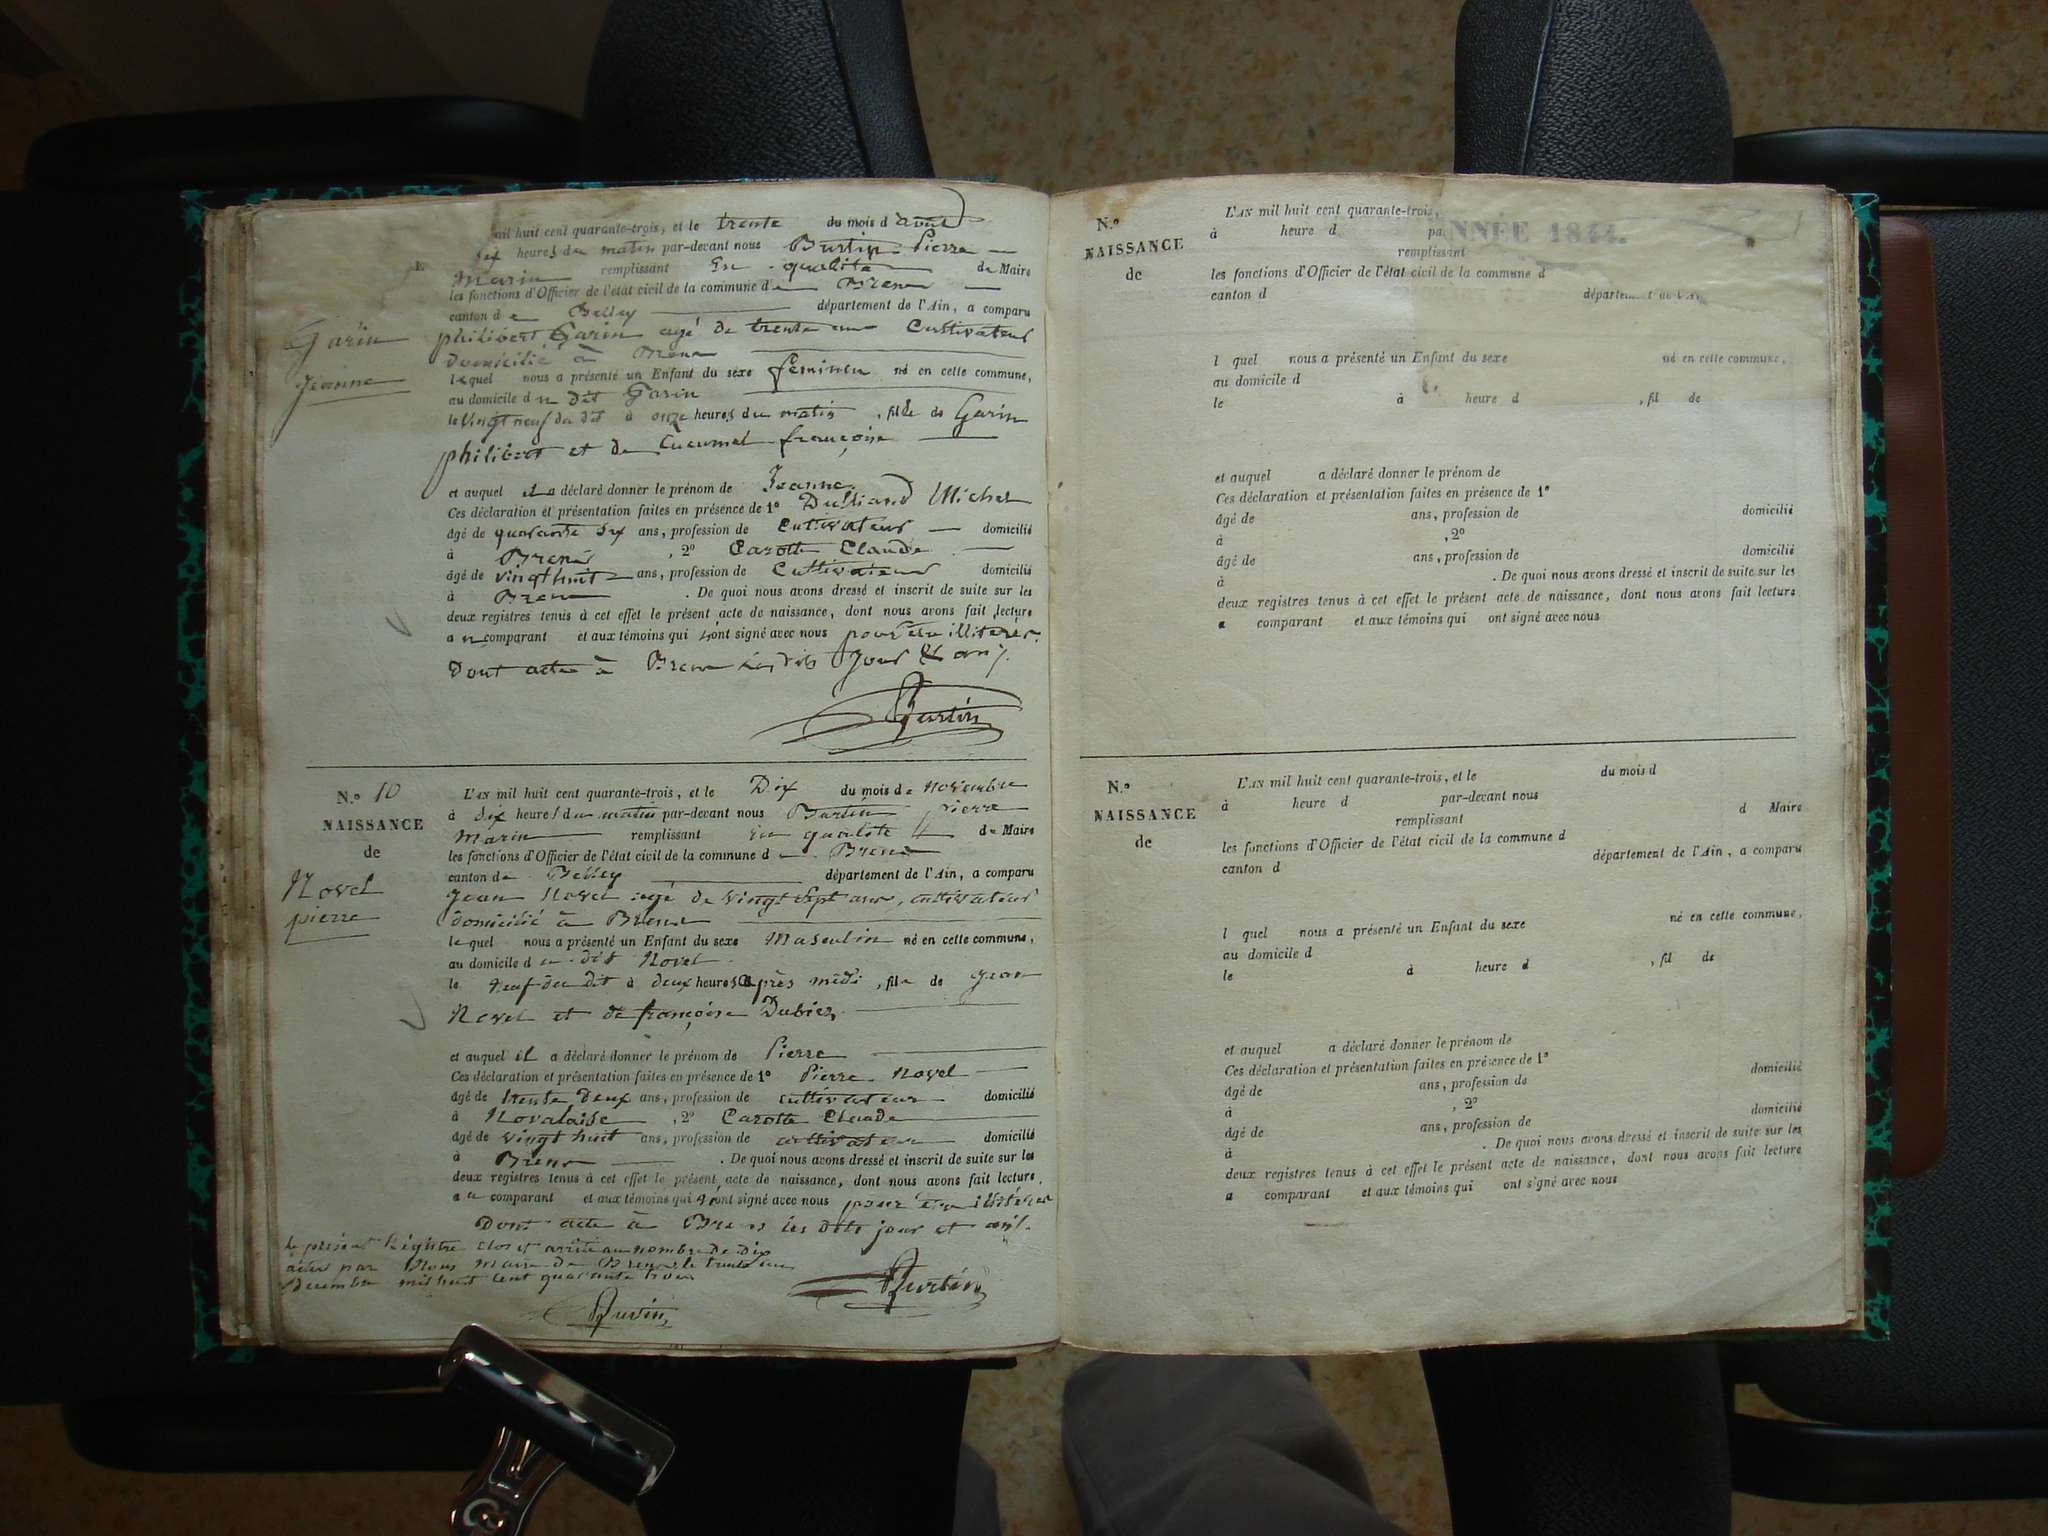 mil huit cent quarante-trois, et le trente du mois d'août
six heures du matin par-devant nous Burtin Pierre
Marin remplissant En qualité de Maire
les fonctions d'Officier de l'état civil de la commune de Brens
canton de Belley département de l'Ain, a comparu
Garin
Jeanne
philibert Garin agé de trente un Cultivateur
Domicilié à Brens
lequel nous a présenté un Enfant du sexe feminin né en cette commune,
au domicile du dit Garin
le vingt neuf du dit à onze heures du matin, fille de Garin
philibert et de Cucumel françoise
et auquel il a déclaré donner le prénom de Jeanne
Ces déclaration et présentation faites en présence de 1° Michel
âgé de quarante six ans, profession de Cultivateur domicilié
à Brens, 2° Carotte Claude
âgé de vingt huit ans, profession de Cultivateur domicilié
à Brens. De quoi nous avons dressé et inscrit de suite sur les
deux registres tenus à cet effet le présent acte de naissance, dont nous avons fait lecture
au comparant et aux témoins qui n'ont signé avec nous pour être
Dont acte à Brens les dits Jour & an
Burtin
N.° 10
NAISSANCE
de
Novel
pierre
L'AN mil huit cent quarante-trois, et le Dix du mois de novembre
à dix heures du matin par-devant nous Burtin pierre
Marin remplissant en qualité de Maire
les fonctions d'Officier de l'état civil de la commune de Brens
canton de Belley département de l'Ain, a comparu
Jean Novel agé de vingt sept ans, cultivateur
domicilié à Brens
lequel nous a présenté un Enfant du sexe Masculin né en cette commune,
au domicile du dit Novel
le neuf du dit à deux heures après midi, fils de Jean
Novel et de françoise Dubiez
et auquel il a déclaré donner le prénom de Pierre
Ces déclaration et présentation faites en présence de 1° Pierre Novel
âgé de trente Deux ans, profession de cultivateur domicilié
à Novalaise, 2° Carotte Claude
âgé de vingt huit ans, profession de cultivateur domicilié
à Brens. De quoi nous avons dressé et inscrit de suite sur les
deux registres tenus à cet effet le présent acte de naissance, dont nous avons fait lecture,
au comparant et aux témoins qui n'ont signé avec nous pour être
Dont acte à Brens les dits jour et an.
Burtin
le présent Régistre clos et arrêté au nombre de dix
actes par Nous Maire de Brens le trente un
Decembre mil huit cent quarante trois
Burtin
N.°
NAISSANCE
de
L'AN mil huit cent quarante-trois,
ANNÉE 1844.
à heure d pa
remplissant
les fonctions d'Officier de l'état civil de la commune d
canton d département de l'A
l quel nous a présenté un Enfant du sexe né en cette commune,
au domicile d
le à heure d , fil de
et auquel a déclaré donner le prénom de
Ces déclaration et présentation faites en présence de 1°
âgé de ans, profession de domicilié
à , 2°
âgé de ans, profession de domicilié
à . De quoi nous avons dressé et inscrit de suite sur les
deux registres tenus à cet effet le présent acte de naissance, dont nous avons fait lecture
a comparant et aux témoins qui ont signé avec nous
N.°
NAISSANCE
de
L'AN mil huit cent quarante-trois, et le du mois d
à heure d par-devant nous
remplissant d Maire
les fonctions d'Officier de l'état civil de la commune d
canton d département de l'Ain, a comparu
l quel nous a présenté un Enfant du sexe né en cette commune,
au domicile d
le à heure d , fil de
et auquel a déclaré donner le prénom de
Ces déclaration et présentation faites en présence de 1°
âgé de ans, profession de domicilié
à , 2°
âgé de ans, profession de domicilié
à . De quoi nous avons dressé et inscrit de suite sur les
deux registres tenus à cet effet le présent acte de naissance, dont nous avons fait lecture
a comparant et aux témoins qui ont signé avec nous